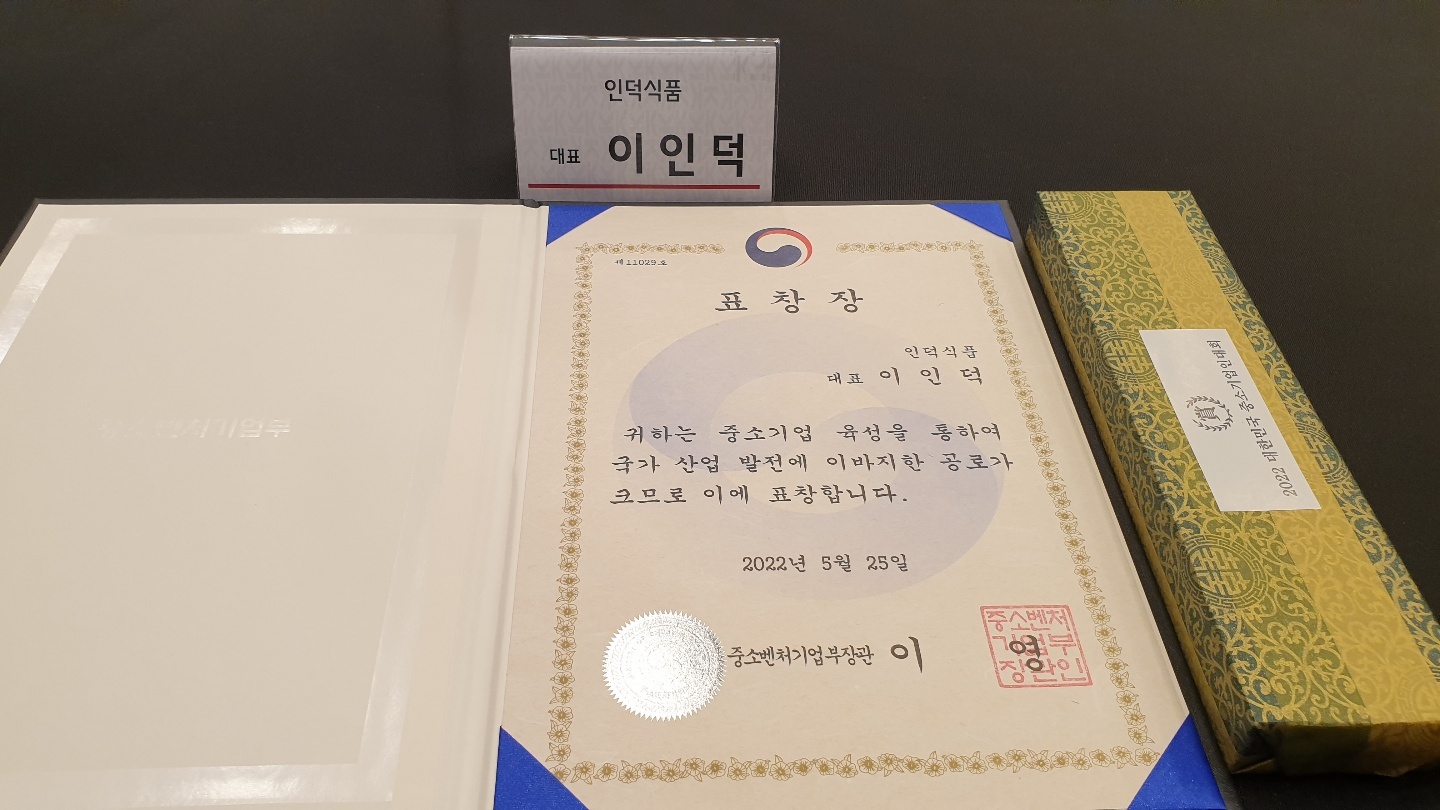 인덕식품
대표 이인덕
제 11029 호
표 창 장
인덕식품
대표 이 인 덕
귀하는 중소기업 육성을 통하여
국가 산업 발전에 이바지한 공로가
크므로 이에 표창합니다.
2022년 5월 25일
중소벤처기업부장관 이 영
중소벤처
기업부
장관인
중소벤처기업부
2022 대한민국 중소기업인대회